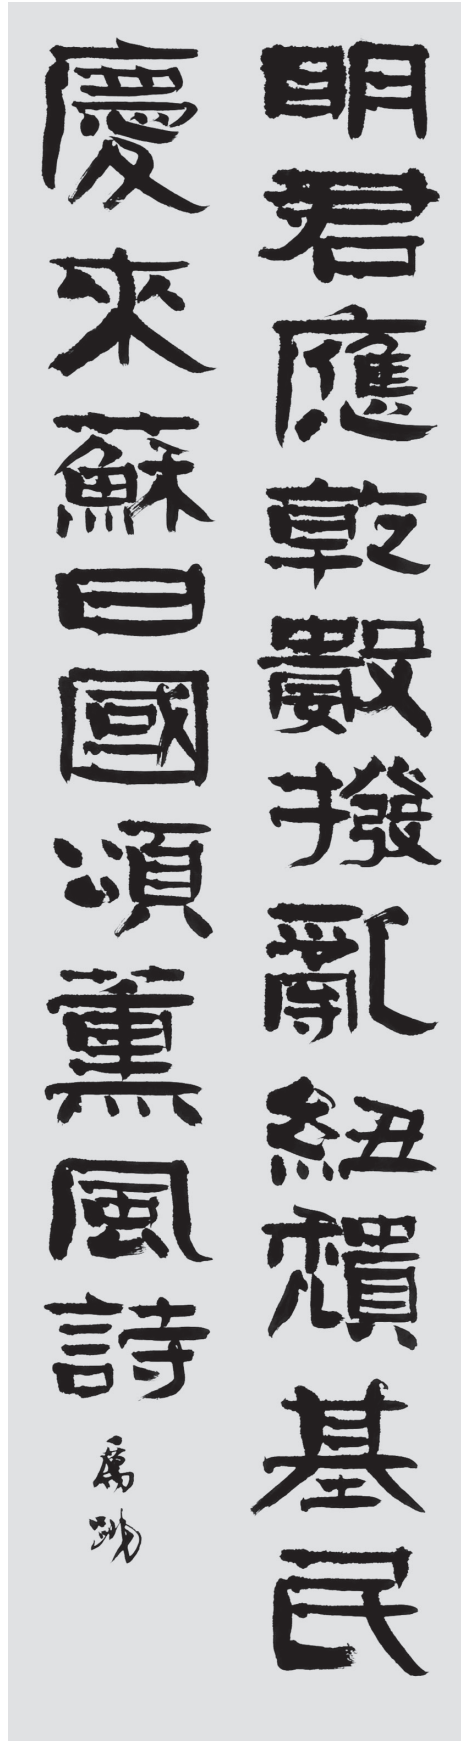 明君應乾數撥亂紐穨基民
慶來蘇日國頌薰風詩